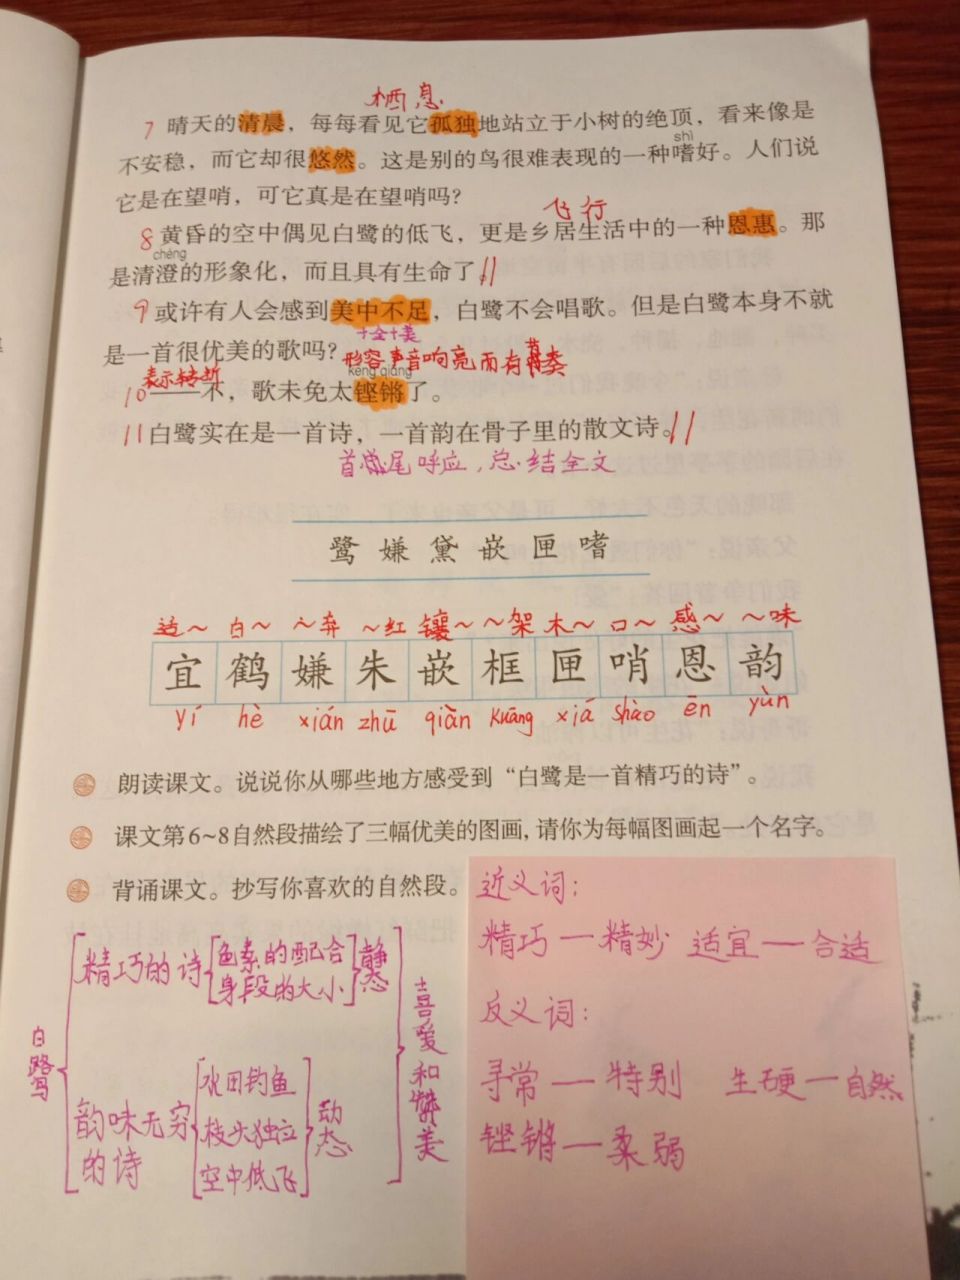 栖息
7 晴天的清晨，每每看见它孤独地站立于小树的绝顶，看来像是
shì
不安稳，而它却很悠然。这是别的鸟很难表现的一种嗜好。人们说
它是在望哨，可它真是在望哨吗？
飞行
8 黄昏的空中偶见白鹭的低飞，更是乡居生活中的一种恩惠。那
chéng
是清澄的形象化，而且具有生命了。
9 或许有人会感到美中不足，白鹭不会唱歌。但是白鹭本身不就
十全十美
是一首很优美的歌吗？
形容声音响亮而有节奏
表示转折
kēng qiāng
10 ——不，歌未免太铿锵了。
11 白鹭实在是一首诗，一首韵在骨子里的散文诗。
首尾呼应，总结全文
鹭 嫌 黛 嵌 匣 嗜
适～ 白～ ～弃 ～红 镶～ ～架 木～ 口～ 感～ ～味
宜 鹤 嫌 朱 嵌 框 匣 哨 恩 韵
yí hè xián zhū qiàn kuāng xiá shào ēn yùn
朗读课文。说说你从哪些地方感受到“白鹭是一首精巧的诗”。
课文第6~8自然段描绘了三幅优美的图画，请你为每幅图画起一个名字。
背诵课文。抄写你喜欢的自然段。
白鹭
精巧的诗
色素的配合
身段的大小
静态
韵味无穷
的诗
水田钓鱼
枝头独立
空中低飞
动态
喜爱和赞美
近义词：
精巧—精妙 适宜—合适
反义词：
寻常—特别 生硬—自然
铿锵—柔弱